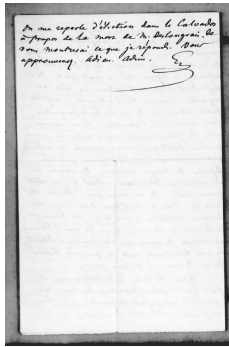 On me reparle d'élection dans le Calvados
à propos de la mort de M. Deslongrais. Je
vous montrerai ce que je réponds. Vous
approuverez. Adieu. Adieu.